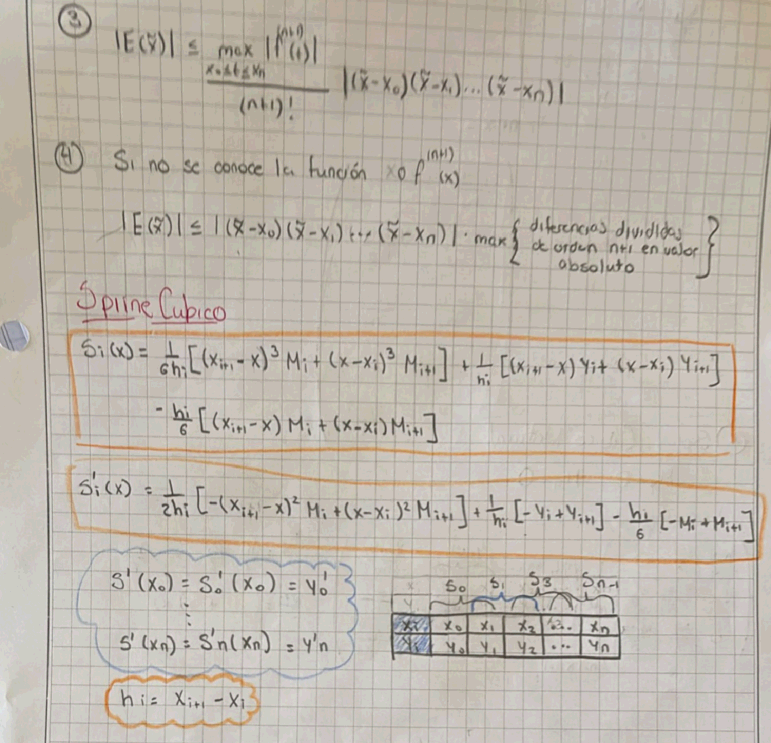 ③ |E(x̃)| ≤ max |f⁽ⁿ⁺¹⁾(t)| |(x̃-x₀)(x̃-x₁)...(x̃-xₙ)|
x₀≤t≤xₙ
(n+1)!
④ Si no se conoce la función x o f⁽ⁿ⁺¹⁾(x)
|E(x̃)| ≤ |(x̃-x₀)(x̃-x₁)...(x̃-xₙ)| · max { diferencias divididas
de orden n+1 en valor
absoluto }
Spline Cubico
Si(x) = 1/6hi [(xi+1 - x)³ Mi + (x-xi)³ Mi+1] + 1/hi [(xi+1 - x) yi + (x-xi) yi+1]
- hi/6 [(xi+1 - x) Mi + (x-xi) Mi+1]
S'i(x) = 1/2hi [-(xi+1 - x)² Mi + (x-xi)² Mi+1] + 1/hi [-yi + yi+1] - hi/6 [-Mi + Mi+1]
S'(x₀) = S₀'(x₀) = y₀'
⋮
S'(xn) = S'n(xn) = y'n
hi = xi+1 - xi
S₀ S₁ S₃ Sn-1
xi x₀ x₁ x₂ ... xn
yi y₀ y₁ y₂ ... yn